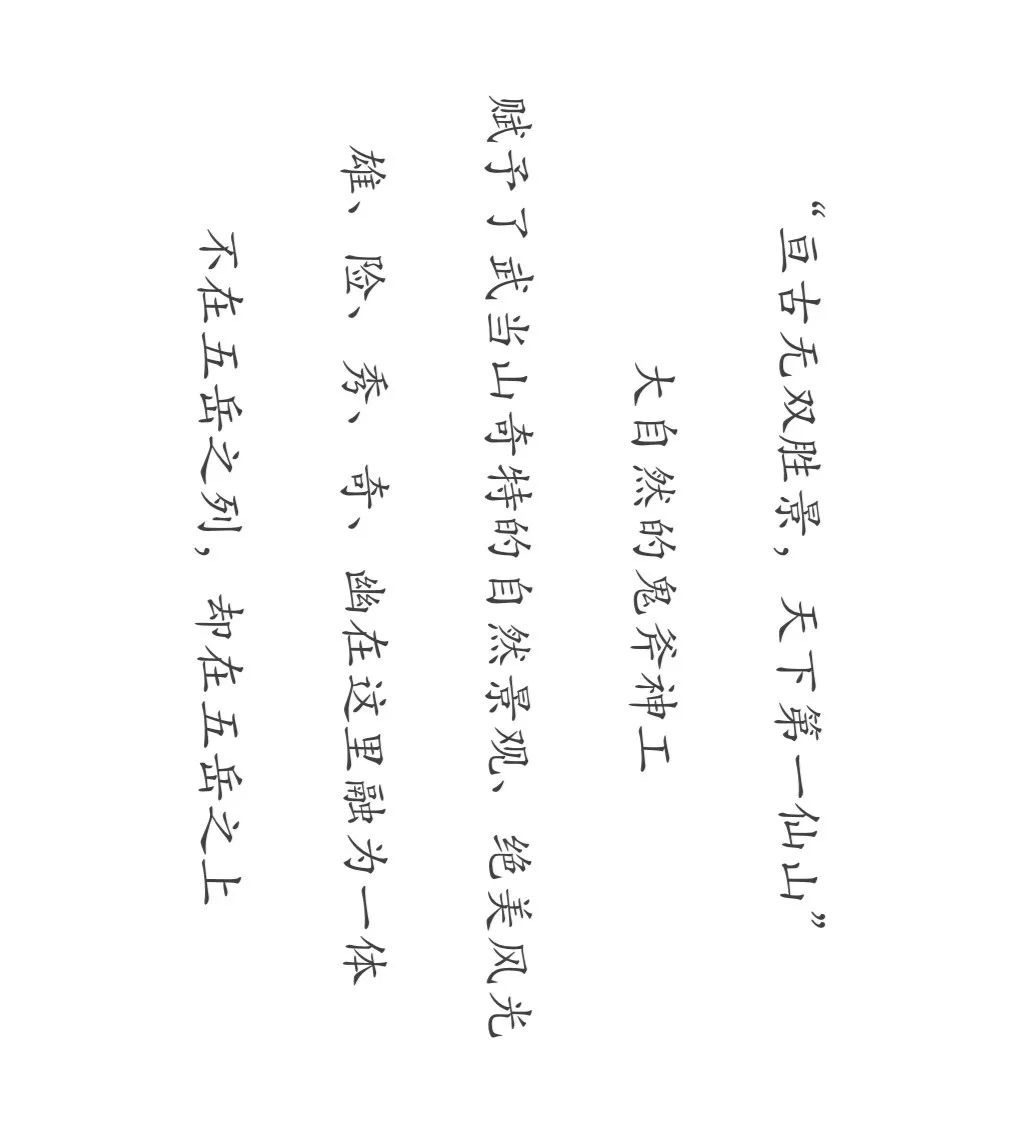 “亘古无双胜景，天下第一仙山”
大自然的鬼斧神工
赋予了武当山奇特的自然景观、绝美风光
雄、险、秀、奇、幽在这里融为一体
不在五岳之列，却在五岳之上